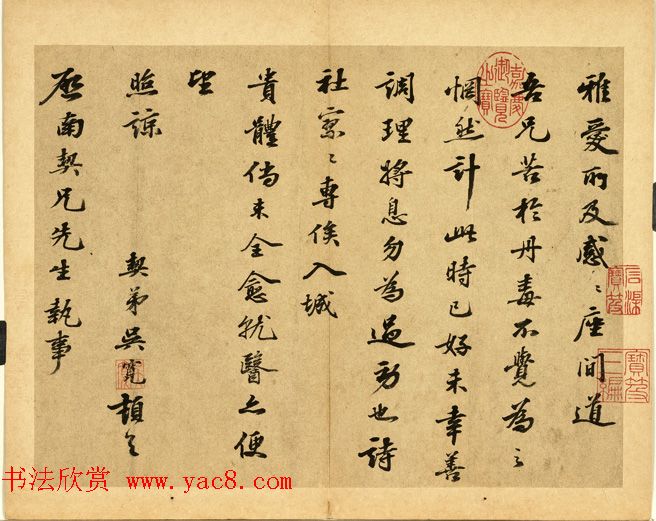 雅愛所及感〻座間道
吾兄苦於丹毒不覺為之
惘然計此時已好未幸善
調理將息勿為過勞也詩
社寥〻專俟入城
貴體倘未全愈就醫亦便
望
照諒
契弟吳寬頓首
啟南契兄先生執事
嘉慶御覽之寶
书法欣赏 www.yac8.com